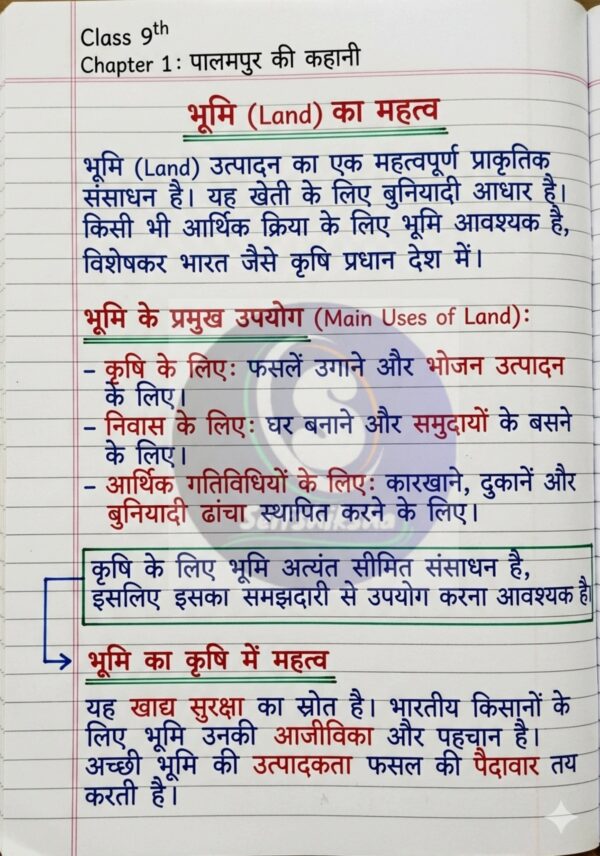 Class 9th
Chapter 1: पालमपुर की कहानी
भूमि (Land) का महत्व
भूमि (Land) उत्पादन का एक महत्वपूर्ण प्राकृतिक
संसाधन है। यह खेती के लिए बुनियादी आधार है।
किसी भी आर्थिक क्रिया के लिए भूमि आवश्यक है,
विशेषकर भारत जैसे कृषि प्रधान देश में।
भूमि के प्रमुख उपयोग (Main Uses of Land):
- कृषि के लिए: फसलें उगाने और भोजन उत्पादन
के लिए।
- निवास के लिए: घर बनाने और समुदायों के बसने
के लिए।
- आर्थिक गतिविधियों के लिए: कारखाने, दुकानें और
बुनियादी ढांचा स्थापित करने के लिए।
कृषि के लिए भूमि अत्यंत सीमित संसाधन है,
इसलिए इसका समझदारी से उपयोग करना आवश्यक है।
भूमि का कृषि में महत्व
यह खाद्य सुरक्षा का स्रोत है। भारतीय किसानों के
लिए भूमि उनकी आजीविका और पहचान है।
अच्छी भूमि की उत्पादकता फसल की पैदावार तय
करती है।